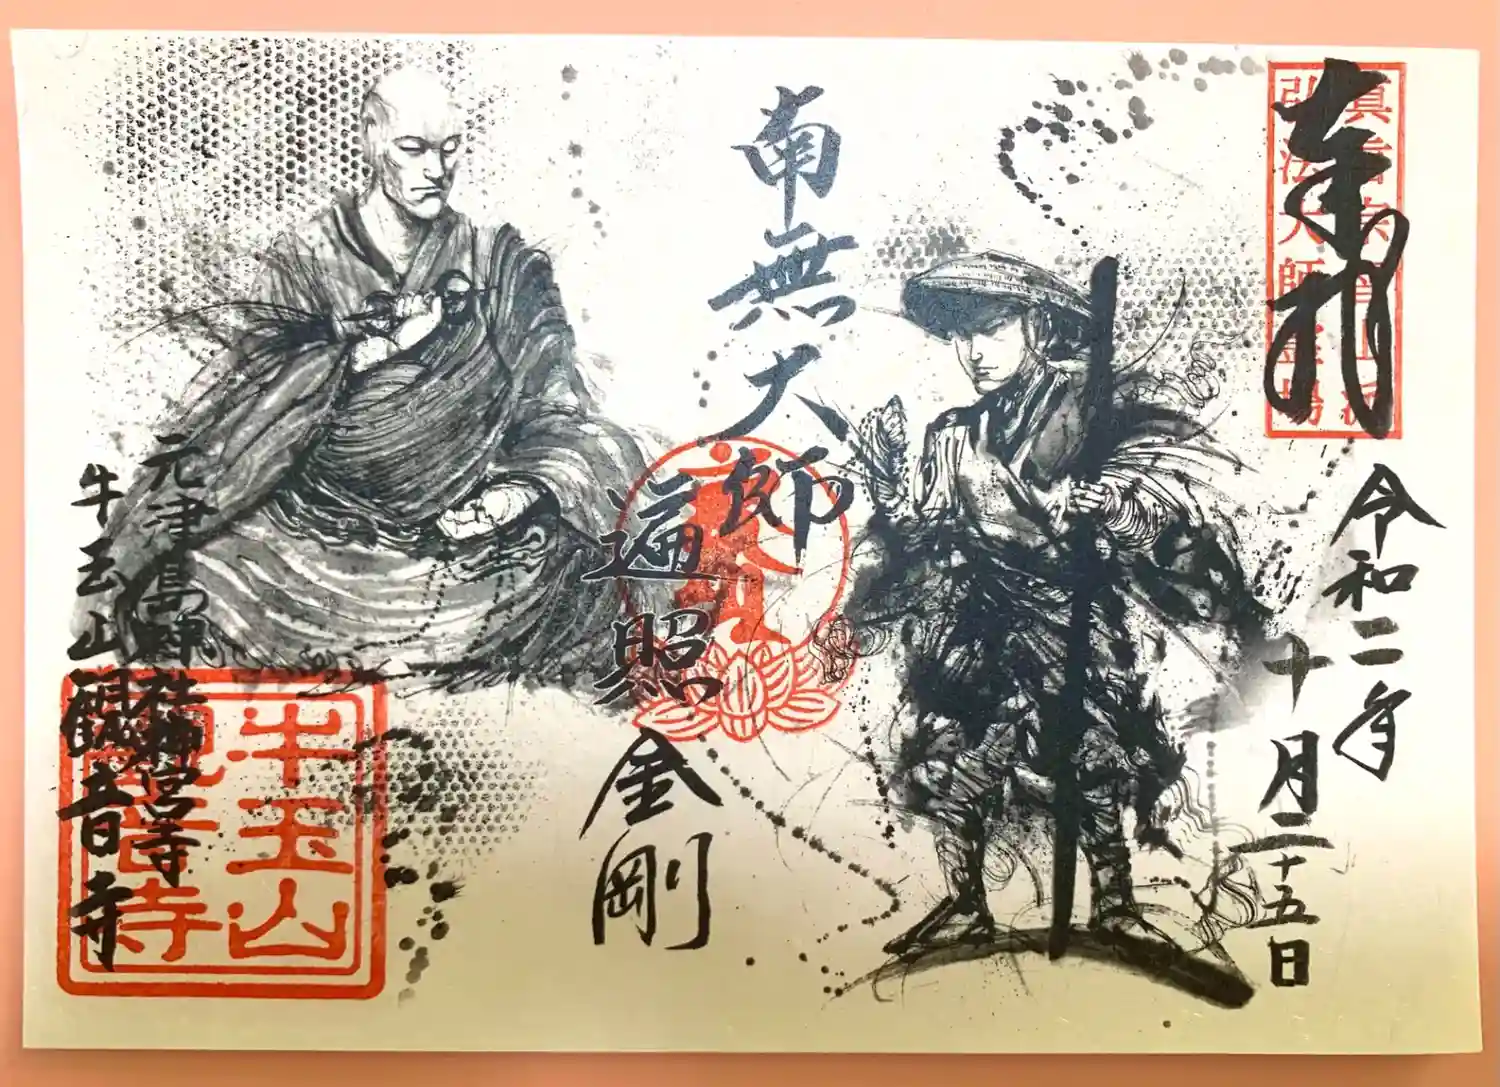 奉拝
眞言宗智山派
弘法大師霊場
令和二年
十月二十五日
南無大師
遍照金剛
元津島神社神宮寺
牛玉山観音寺
牛玉山
観音寺